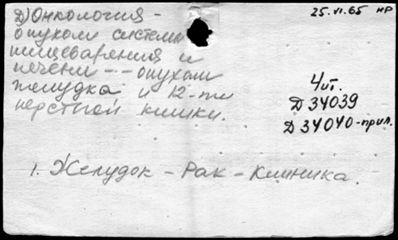 Д) Онкология -
опухоли системы
пищеварения и
печени -- опухоли
желудка и 12-ти
перстной кишки.
25.VI.65 НР
Чит.
Д 34039
Д 34040-прил.
1. Желудок - Рак - Клиника.